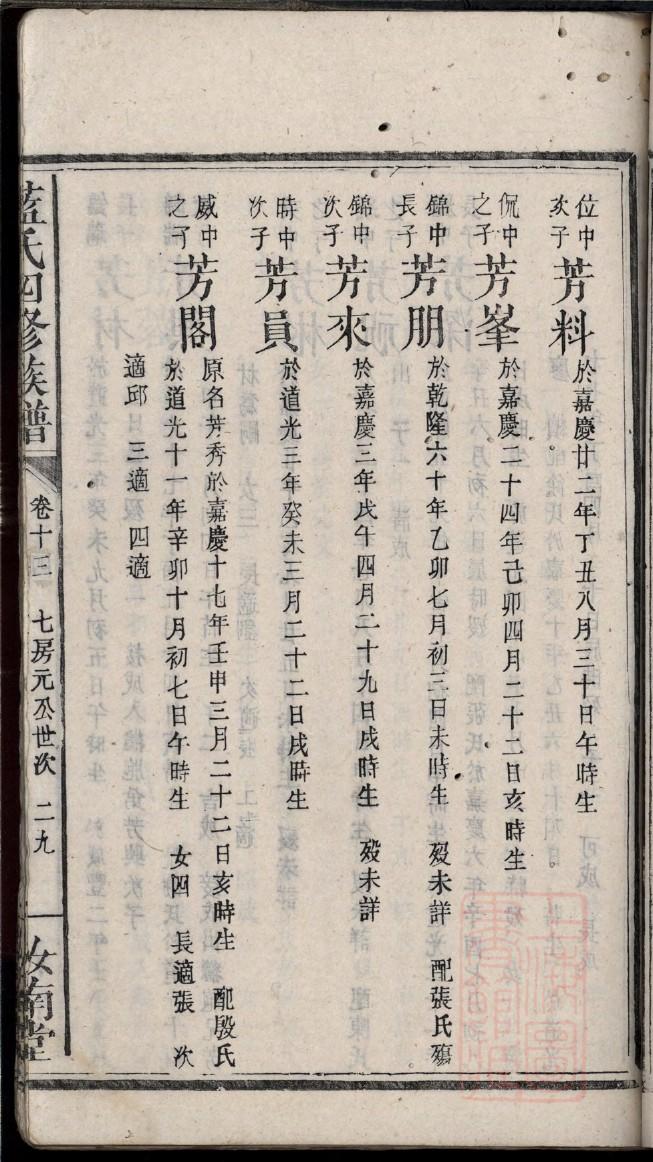 位中
次子
芳料
於嘉慶廿二年丁丑八月三十日午時生
侃中
之子
芳峯
於嘉慶二十四年己卯四月二十二日亥時生
錦中
長子
芳朋
於乾隆六十年乙卯七月初三日未時生 歿未詳 配張氏殤
錦中
次子
芳來
於嘉慶三年戊午四月二十九日戌時生 歿未詳
時中
次子
芳員
於道光三年癸未三月二十二日戌時生
威中
之子
芳閣
原名芳秀於嘉慶十七年壬申三月二十二日亥時生 配殷氏
於道光十一年辛卯十月初七日午時生 女四 長適張 次
適邱 三適 四適
藍氏四修族譜
卷十三 七房元公世次 二九
汝南堂